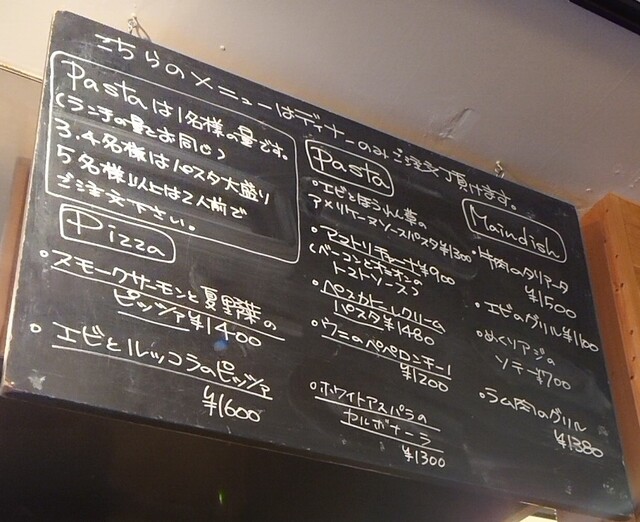 こちらのメニューはディナーのみご注文頂けます。
Pastaは1名様の量です。
(ランチの量とお同じ)
3.4名様はパスタ大盛り
5名様以上は2人前で
ご注文下さい。
Pizza
・スモークサーモンと夏野菜の
ピッツァ¥1400
・エビとルッコラのピッツァ
¥1600
Pasta
・エビとほうれん草の
アメリケーヌソースパスタ¥1300
・アマトリチャーナ¥900
(ベーコンとオニオンの
トマトソース)
・ペスカトーレクリーム
パスタ¥1480
・ウニのペペロンチーノ
¥1200
・ホワイトアスパラの
カルボナーラ
¥1300
Maindish
・牛肉のタリアータ
¥1500
・エビのグリル¥1100
・めくりアジの
ソテー¥700
・ラム肉のグリル
¥1380